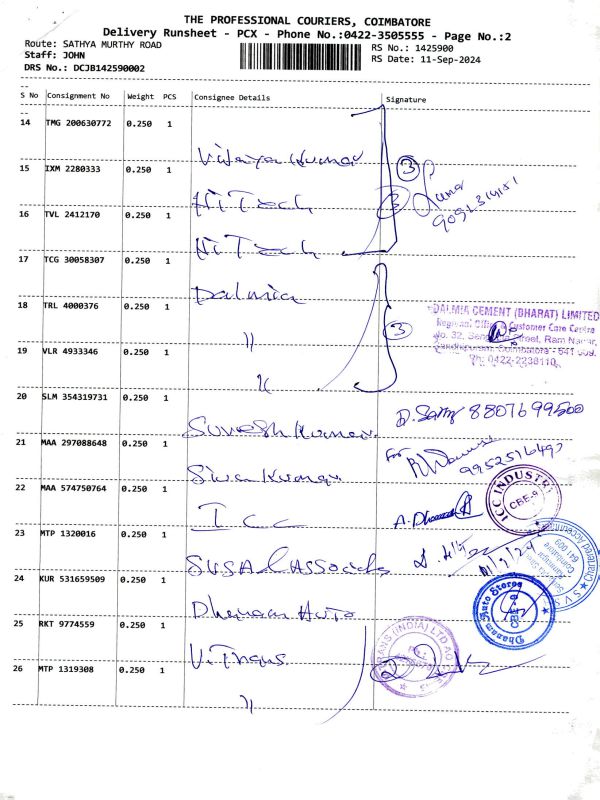 THE PROFESSIONAL COURIERS, COIMBATORE
Delivery Runsheet - PCX - Phone No.:0422-3505555 - Page No.:2
Route: SATHYA MURTHY ROAD
Staff: JOHN
DRS No.: DCJB142590002
RS No.: 1425900
RS Date: 11-Sep-2024
S No Consignment No Weight PCS Consignee Details Signature
14 TMG 200630772 0.250 1
Vijaya Kumar
15 IXM 2280333 0.250 1
Hi Tech
16 TVL 2412170 0.250 1
Hi Tech
17 TCG 30058307 0.250 1
Dalmia
18 TRL 4000376 0.250 1
"
19 VLR 4933346 0.250 1
"
3
3
3
DALMIA CEMENT (BHARAT) LIMITED
Regional Office & Customer Care Centre
No. 32, Street, Ram Nagar,
Coimbatore - 641 009.
Ph: 0422-2236110
20 SLM 354319731 0.250 1
Suresh Kumar
21 MAA 297088648 0.250 1
Siva Kumar
for
22 MAA 574750764 0.250 1
I C C
A. Dhanas
ICC INDUSTRI
CBE-9
23 MTP 1320016 0.250 1
SVSA & Associates
Chartered Accountants
641 009
24 KUR 531659509 0.250 1
Dhanam Auto
Dhanam Auto Stores
25 RKT 9774559 0.250 1
V. Trans
TRANS (INDIA) LTD
26 MTP 1319308 0.250 1
"
2